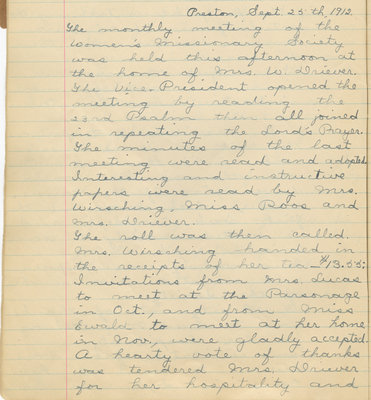 Preston, Sept. 25th, 1912.
The monthly meeting of the
Women's Missionary Society
was held this afternoon at
the home of Mrs. W. Driever.
The Vice-President opened the
meeting by reading the
23rd Psalm then all joined
in repeating the Lord's Prayer.
The minutes of the last
meeting were read and adopted.
Interesting and instructive
papers were read by Mrs.
Wirsching, Miss Roos and
Mrs. Driever.
The roll was then called.
Mrs. Wirsching handed in
the receipts of her tea—$13.55;
Invitations from Mrs. Lucas
to meet at the Parsonage
in Oct., and from Miss
Ewald to meet at her home
in Nov., were gladly accepted.
A hearty vote of thanks
was tendered Mrs. Driever
for her hospitality and